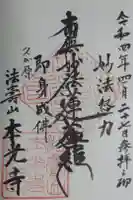 令和四年四月二十七日参拝之印
妙法経力
南無妙法蓮華経
即身成仏
久が原
法壽山 本光寺